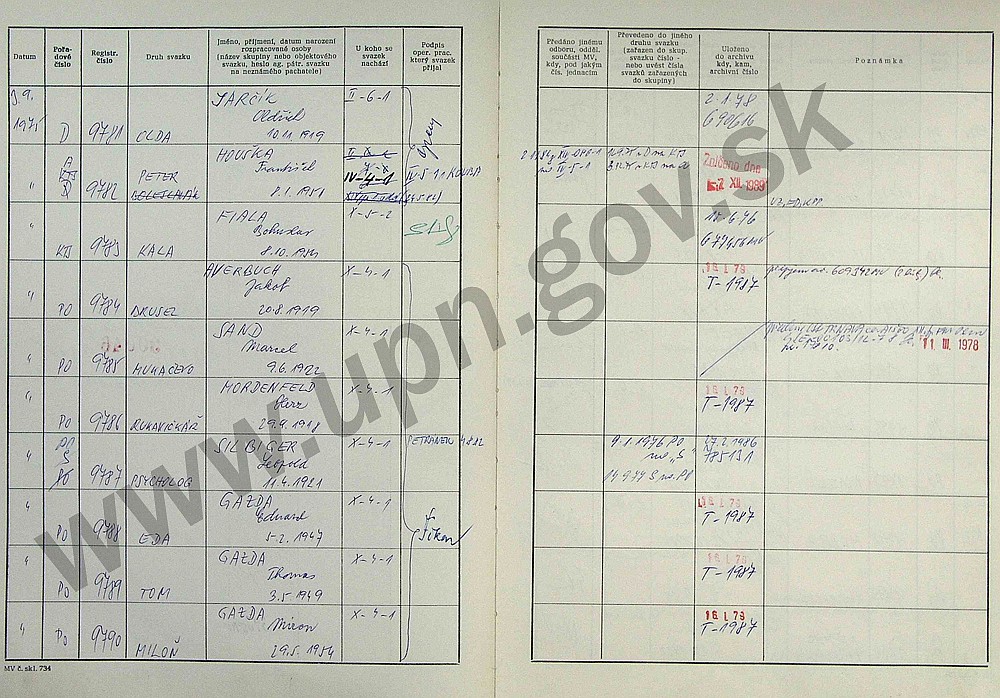 Datum
Pořa-
dové
číslo
Registr.
číslo
Druh svazku
Jméno, příjmení, datum narození
rozpracované osoby
(název skupiny nebo objektového
svazku, heslo ag. pátr. svazku
na neznámého pachatele)
U koho se
svazek
nachází
Podpis
oper. prac.
který svazek
přijal
Předáno jinému
odboru, odděl.
součásti MV,
kdy, pod jakým
čís. jednacím
Převedeno do jiného
druhu svazku
(zařazen do skup.
svazku číslo -
nebo uvést čísla
svazků zařazených
do skupiny)
Uloženo
do archivu
kdy, kam,
archivní číslo
Poznámka
3.9.
1975
D
9781
OLDA
JARČÍK
Oldřich
10.11.1919
II-6-1
2.1.78
690616
"
D
9782
PETER
BOLESLAVÁK
HOUŠKA
František
8.1.1951
IV-4-1
IV-5-1 KOUBA
Zničeno dne
7. XII. 1989
"
KTS
9783
KALA
FIALA
Bohuslav
8.10.1934
X-5-2
15.6.76
677456 MV
"
PO
9784
DRUSEL
AVERBUCH
Jakob
20.8.1919
X-4-1
16. I. 79
T-1987
"
PO
9785
MUKAČEVO
SAND
Marcel
9.6.1922
X-4-1
11 III. 1978
"
PO
9786
RUKAVIČKÁŘ
MORDENFELD
Herz
29.9.1918
X-4-1
16. I. 79
T-1987
"
PO
S
PO
9787
PSYCHOLOG
SILBIGER
Leopold
11.4.1921
X-4-1
PETRÁNEK
9.1.1976 PO
na „S"
14.9.77 S na PO
17.2.1986
785131
"
PO
9788
EDA
GAZDA
Eduard
5.2.1947
X-4-1
16. I. 79
T-1987
"
PO
9789
TOM
GAZDA
Thomas
3.5.1949
X-4-1
16. I. 79
T-1987
"
PO
9790
MILOŇ
GAZDA
Miron
29.5.1954
X-4-1
16. I. 79
T-1987
MV č. skl. 734
www.upn.gov.sk